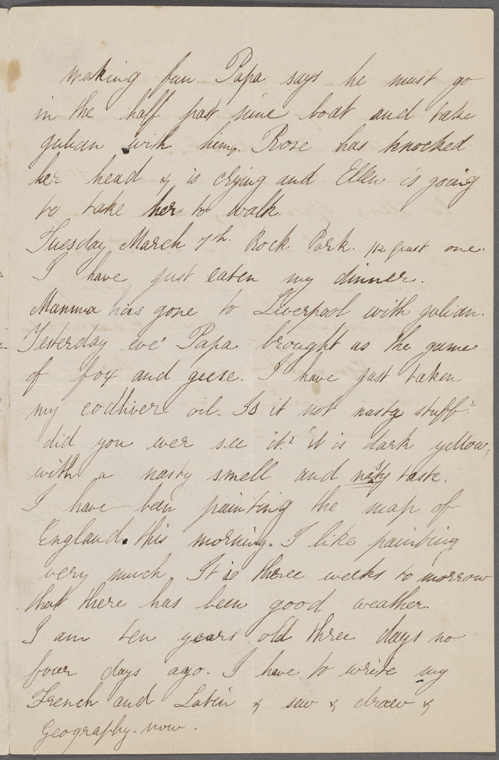 making fun Papa says he must go
in the half past nine boat and take
Julian with him. Rose has knocked
her head & is crying and Ellen is going
to take her to walk
Tuesday March 7th. Rock Park. 1/2 past one.
I have just eaten my dinner.
Mamma has gone to Liverpool with Julian.
Yesterday eve' Papa brought us the game
of fox and geese. I have just taken
my codliver oil. Is it not nasty stuff?
did you ever see it? it is dark yellow,
with a nasty smell and nasty taste.
I have been painting the map of
England. this morning. I like painting
very much. It is three weeks to morrow
that there has been good weather.
I am ten years old three days no
four days ago. I have to write my
French and Latin & sew & draw &
Geography. now.